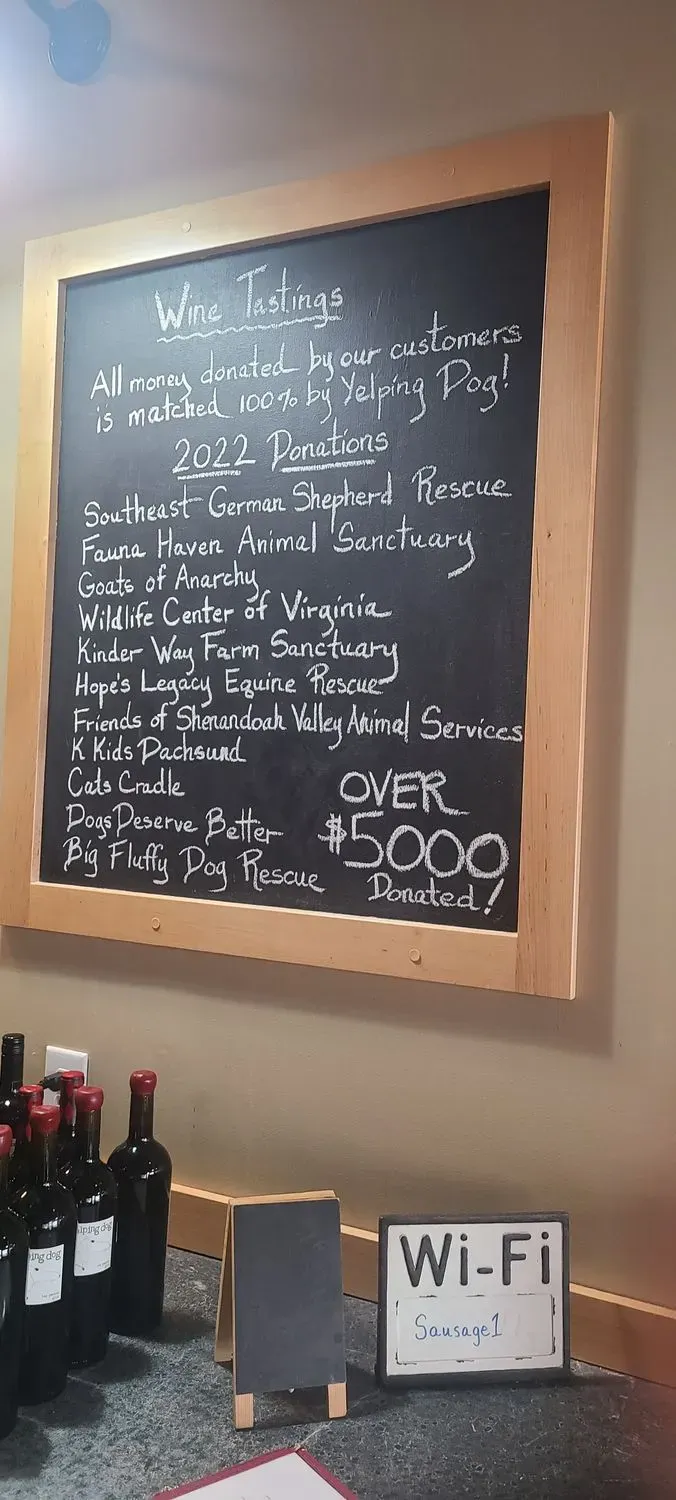 Wine Tastings
All money donated by our customers
is matched 100% by Yelping Dog!
2022 Donations
Southeast German Shepherd Rescue
Fauna Haven Animal Sanctuary
Goats of Anarchy
Wildlife Center of Virginia
Kinder Way Farm Sanctuary
Hope's Legacy Equine Rescue
Friends of Shenandoah Valley Animal Services
K Kids Dachsund
Cats Cradle
Dogs Deserve Better
Big Fluffy Dog Rescue
OVER
$5000
Donated!
ping dog
lping dog
Wi-Fi
Sausage1